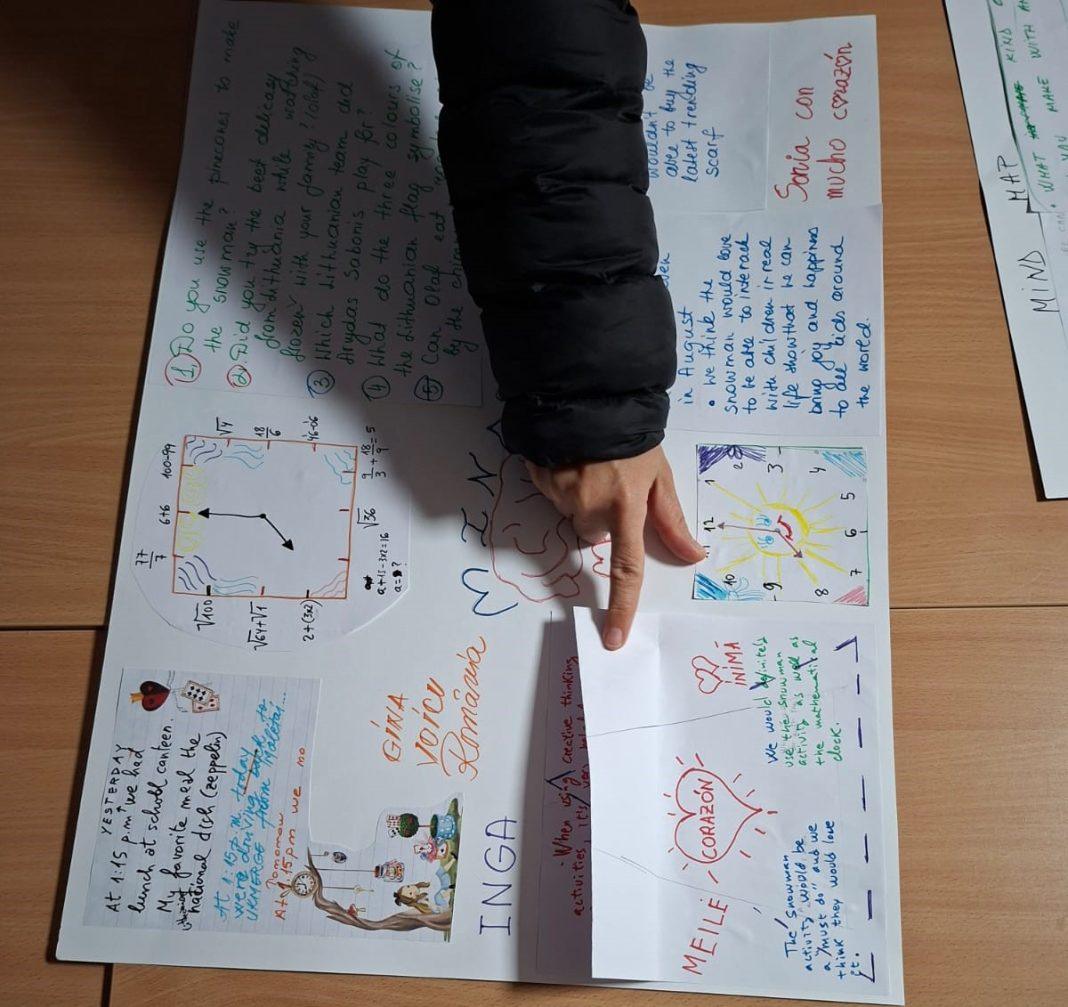 YESTERDAY
At 1:15 p.m. we had
lunch at school canteen.
My favorite meal the
national dich (zeppelin)
At 1:15 pm today
we were driving
UKMERGE from Molėtai...
Tomorrow
At 1.15 pm we no
77/7
6+6
100-99
√4
18/6
46-06
9/3 + 18/9 = 5
√36
a+15-3x2=16
a=?
2+(3x2)
√64+√1
√100
1. Do you use the pinecones to make
the snowman?
2. Did you try the best delicacy
from Lithuania while watching
frozen with your family? (Olaf)
3 Which Lithuanian team did
Arvydas Sabonis play for?
4 What do the three colours of
the Lithuanian flag symbolise?
5 Can Olaf eat
by the
GINA
VOICU
România
INGA
M I N
When using creative thinking
activities, it's very
MEILĖ
CORAZÓN
INIMĂ
The snowman
activity would be
a "must do" and we
think they would love
it.
We would definitely
use the snowman
activity as well as
the mathematical
clock.
12
1
2
3
4
5
6
7
8
9
10
wouldn't be
able to buy the
latest trending
scarf
in August
• We think the
snowman would love
to be able to interack
with children in real
life showthat he can
bring joy and happines
to all kids around
the world.
Sonia con
mucho corazón
MIND MAP
• WHAT KIND
MAKE WITH